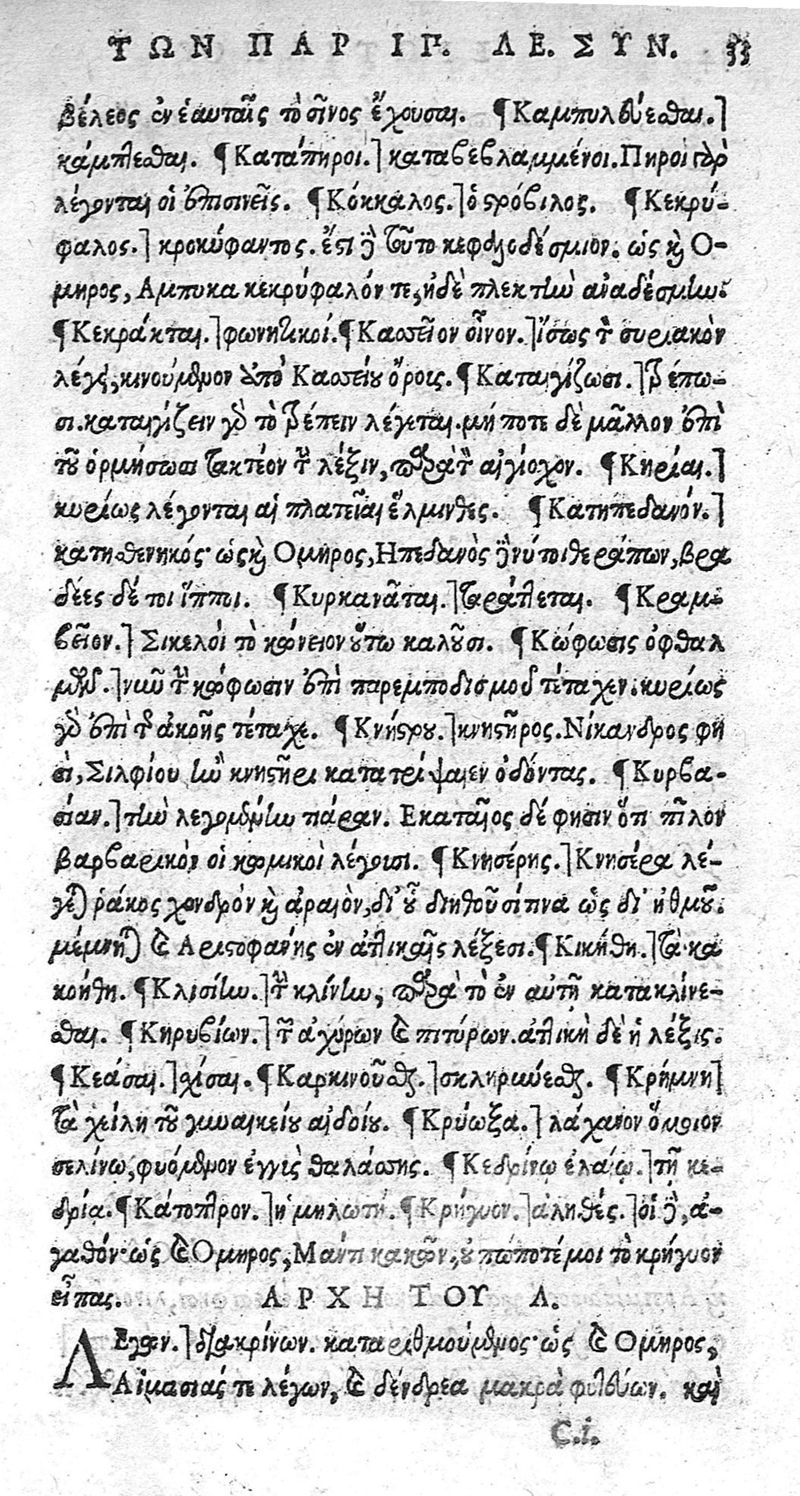 ΤΩΝ ΠΑΡ ΙΠ. ΛΕ. ΣΥΝ. 33
βέλεος ἐν ἑαυταῖς τὸ σῖνος ἔχουσαι. ¶Καμπυλεύεσθαι.]
κάμπτεσθαι. ¶Κατάπηροι.] καταβεβλαμμένοι. Πηροὶ γὰρ
λέγονται οἱ ἐπισινεῖς. ¶Κόκκαλος.] ὁ στρόβιλος. ¶Κεκρύ-
φαλος.] κροκύφαντος. ἔστι δὲ τοῦτο κεφαλοδέσμιον. ὡς καὶ Ο-
μηρος, Αμπυκα κεκρύφαλόν τε, ἠδὲ πλεκτὴν ἀναδέσμην.
¶Κεκράκται.] φωνητικοί. ¶Καασεῖον οἶνον.] ἴσως τὸν συριακὸν
λέγει, κινούμενον ἀπὸ Κασσείου ὄροις. ¶Καταιγίζωσι.] ῥέπω-
σι. καταιγίζειν γὰρ τὸ ῥέπειν λέγεται. μή ποτε δὲ μᾶλλον ἐπὶ
τοῦ ὁρμήσωσι τακτέον τὴν λέξιν, παρὰ τὸν αἰγίοχον. ¶Κηρίαι.]
κυρίως λέγονται αἱ πλατεῖαι ἕλμινθες. ¶Κατηπεδανόν.]
κατησθενηκός· ὡς καὶ Ομηρος, Ηπεδανὸς δέ νύ τοι θεράπων, βρα
δέες δέ τοι ἵπποι. ¶Κυρκανᾶται.] ταράττεται. ¶Κραμ-
βεῖον.] Σικελοὶ τὸ κώνειον οὕτω καλοῦσι. ¶Κώφωσις ὀφθαλ
μῶν.] νῦν τὴν κώφωσιν ἐπὶ παρεμποδισμοῦ τέταχεν. κυρίως
γὰρ ἐπὶ τῆς ἀκοῆς τέταχε. ¶Κνήστρου.] κνηστῆρος. Νίκανδρος φη
σὶ, Σιλφίου ἢν κνηστῆρι κατατρίψαιεν ὀδόντας. ¶Κυρβα-
σίαν.] τὴν λεγομένην τιάραν. Εκαταῖος δέ φησιν ὅτι πῖλον
βαρβαρικὸν οἱ κωμικοὶ λέγουσι. ¶Κνησέρης.] Κνησέρα λέ-
γεται ῥάκος χονδρὸν καὶ ἀραιὸν, δι' οὗ διηθοῦσί τινα ὡς δι' ἠθμοῦ.
μέμνηται καὶ Αριστοφάνης ἐν ἀττικαῖς λέξεσι. ¶Κικήθη.] τὰ κα
κοήθη. ¶Κλισίην.] τὴν κλίνην, παρὰ τὸ ἐν αὐτῇ κατακλίνε-
σθαι. ¶Κηρυβίων.] τῶν ἀχύρων καὶ πιτύρων. ἀττικὴ δὲ ἡ λέξις.
¶Κεάσαι.] σχίσαι. ¶Καρκινοῦσθαι.] σκληρύνεσθαι. ¶Κρήμνη]
τὰ χείλη τοῦ γυναικείου αἰδοίου. ¶Κρύωξα.] λάχανον ὅμοιον
σελίνω, φυόμενον ἐγγὺς θαλάσσης. ¶Κεδρίνω ἐλαίῳ.] τῇ κε-
δρία. ¶Κάτοπτρον.] ἡ μηλωτή. ¶Κρήγυον.] ἀληθές.] οἱ δὲ, ἀ-
γαθόν· ὡς καὶ Ομηρος, Μάντι κακῶν, οὐ πώποτέ μοι τὸ κρήγυον
εἶπας. ΑΡΧΗ ΤΟΥ Λ.
Λέγων.] διακρίνων. καταριθμούμενος· ὡς καὶ Ομηρος,
Αἱμασιάς τε λέγων, καὶ δένδρεα μακρὰ φυτεύων. καὶ
C.i.